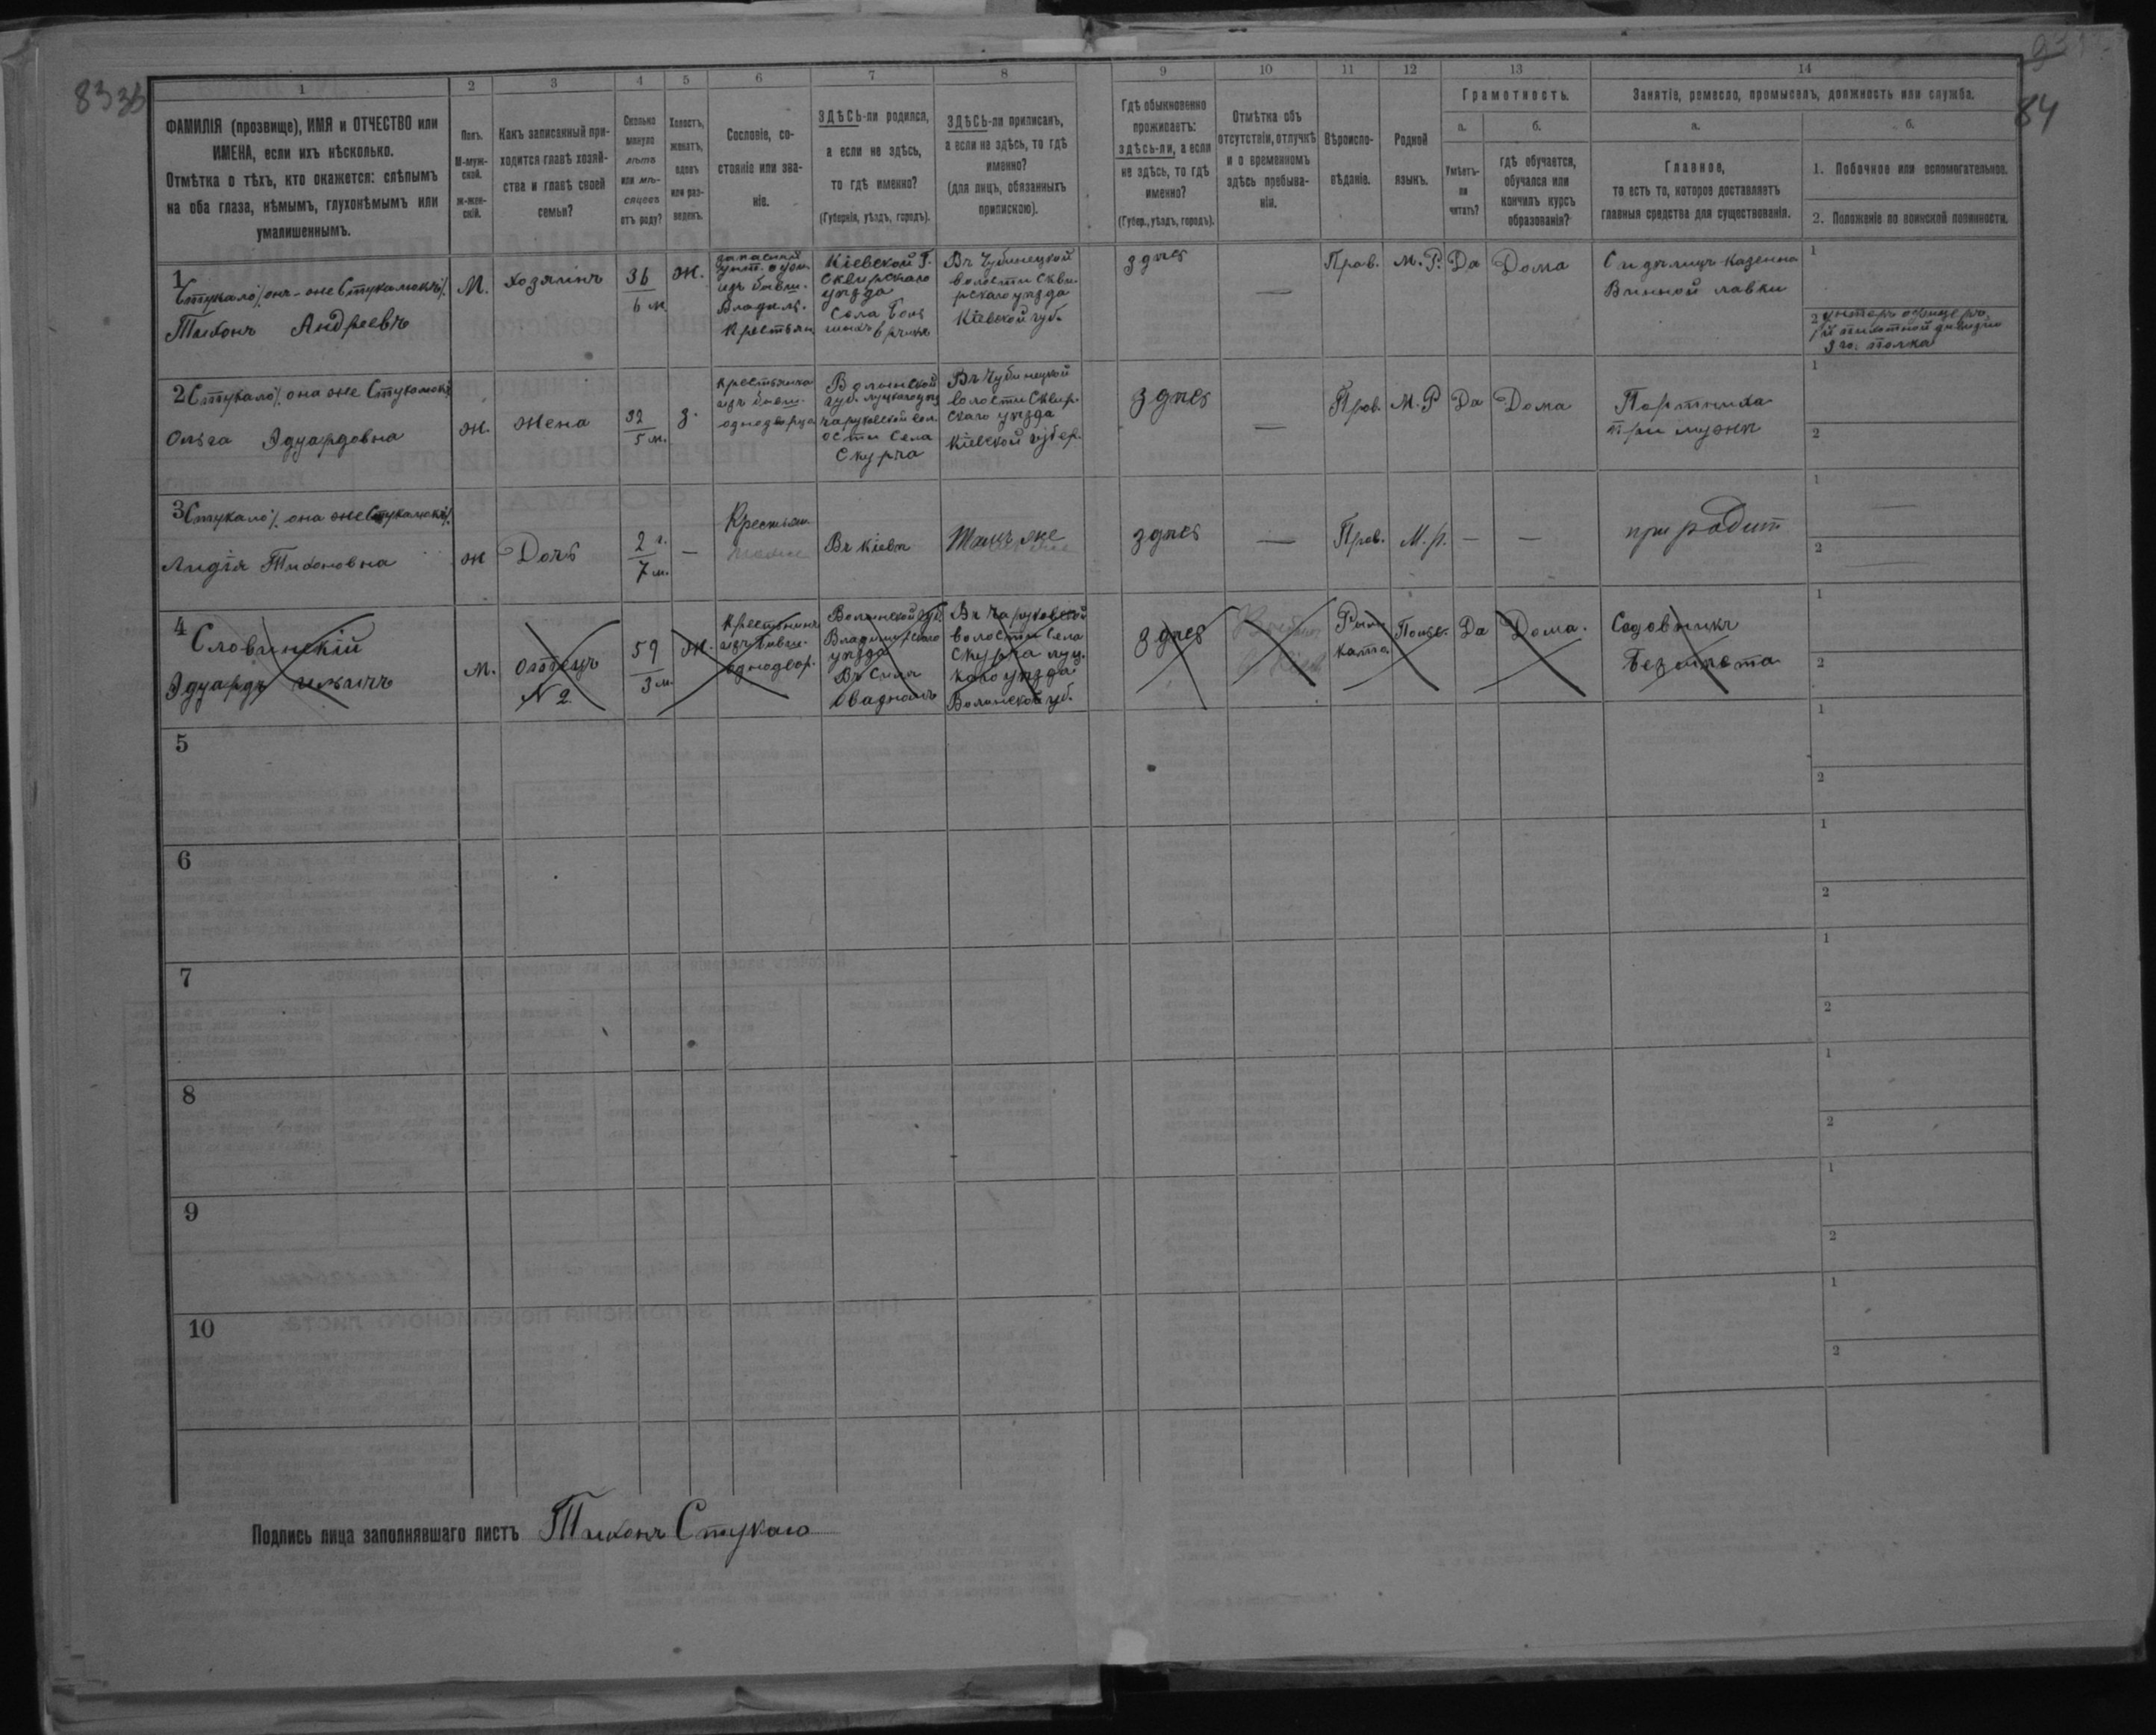 83
84
1 2 3 4 5 6 7 8 9 10 11 12 13 14
ФАМИЛІЯ (прозвище), ИМЯ и ОТЧЕСТВО или
ИМЕНА, если ихъ нѣсколько.
Отмѣтка о тѣхъ, кто окажется: слѣпымъ
на оба глаза, нѣмымъ, глухонѣмымъ или
умалишеннымъ.
Полъ.
М-муж-
ской.
ж-жен-
скій.
Какъ записанный при-
ходится главѣ хозяй-
ства и главѣ своей
семьи?
Сколько
минуло
лѣтъ
или мѣ-
сяцевъ
отъ роду?
Холостъ,
женатъ,
вдовъ
или раз-
веденъ.
Сословіе, со-
стояніе или зва-
ніе.
ЗДѢСЬ-ли родился,
а если не здѣсь,
то гдѣ именно?
(Губернія, уѣздъ, городъ).
ЗДѢСЬ-ли приписанъ,
а если не здѣсь, то гдѣ
именно?
(для лицъ, обязанныхъ
припискою).
Гдѣ обыкновенно
проживаетъ:
здѣсь-ли, а если
не здѣсь, то гдѣ
именно?
(Губер., уѣздъ, городъ).
Отмѣтка объ
отсутствіи, отлучкѣ
и о временномъ
здѣсь пребыва-
ніи.
Вѣроиспо-
вѣданіе.
Родной
языкъ.
Грамотность.
а.
Умѣетъ-
ли
читать?
б.
гдѣ обучается,
обучался или
кончилъ курсъ
образованія?
Занятіе, ремесло, промыселъ, должность или служба.
а.
Главное,
то есть то, которое доставляетъ
главныя средства для существованія.
б.
1. Побочное или вспомогательное.
2. Положеніе по воинской повинности.
1
Стукало /. онъ-же Стукалюкъ /.
Тихонъ Андреевъ
М.
хозяинъ
36
6 м
Ж.
запасный
унт. офи.
изъ бывш.
Владѣль.
Крестьян
Кіевской Г.
Сквирскаго
уѣзда
Села
Въ Чубинецкой
волости Скви-
рскаго уѣзда
Кіевской губ.
здѣсь
—
Прав.
М. Р.
Да
Дома
Сидѣлицъ казенно
Винной лавки
1
2 унтеръ офицеръ,
пѣхотной дивизіи
3 го. полка
2 Стукало /. она же Стукалюкъ
Ольга Эдуардовна
ж.
Жена
32
5 м.
З.
крестьянка
изъ бывш.
однодворца
Волынской
губ. Луцкаго уѣз
Чаруковской вол-
ости Села
Скурча
Въ Чубинецкой
волости Сквир-
скаго уѣзда
Кіевской губер.
здѣсь
—
Прав.
М. Р
Да
Дома
Портниха
при мужѣ
1
2
3 Стукало /. она же Стукалюкъ /.
Лидія Тихоновна
ж
Дочь
2 г.
7 м.
—
Крестьян.
Въ Кіевѣ
Тамъ же
здѣсь
—
Прав.
М. р.
—
—
при родит
1
2
4
Словинскій
Эдуардъ
М.
отецъ
N 2
59
3 м.
Ж.
Крестьнинъ
изъ бывш.
однодвор.
Волынской губ.
Владимірскаго
уѣзда
Въ Селѣ
Оваднахъ
Въ Чаруковской
волости Села
Скурча луц.
каго уѣзда
Волынской губ.
здѣсь
Рим.
като.
Польс.
Да
Дома.
Садовникъ
Безъ мѣста
1
2
5
1
2
6
1
2
7
1
2
8
1
2
9
1
2
10
1
2
Подпись лица заполнявшаго листъ Тихонъ Стукало